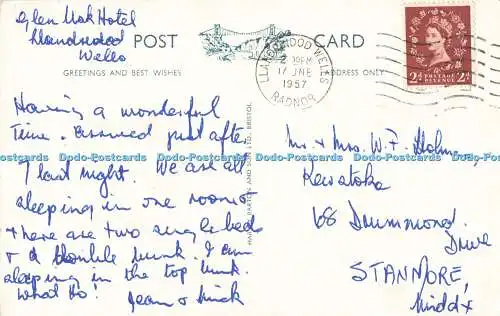 Glen Usk Hotel
Llandrindod
Wells
POST CARD
GREETINGS AND BEST WISHES
ADDRESS ONLY
LLANDRINDOD WELLS
2 30PM
17 JNE
1957
RADNOR
2d POSTAGE REVENUE 2d
Having a wonderful
time. Arrived just after
7 last night. We are all
sleeping in one room &
there are two single beds
& a double bunk. I am
sleeping in the top bunk.
What Ho!
Jean & Mick
HARVEY BARTON AND SON LTD. BRISTOL
Mr & Mrs. W. F. Holman
Rewatoka
68 Drummond
Drive
STANMORE,
Middx
Dodo-Postcards Dodo-Postcards Dodo-Postcards Dodo-Postcards Dodo-Postcards